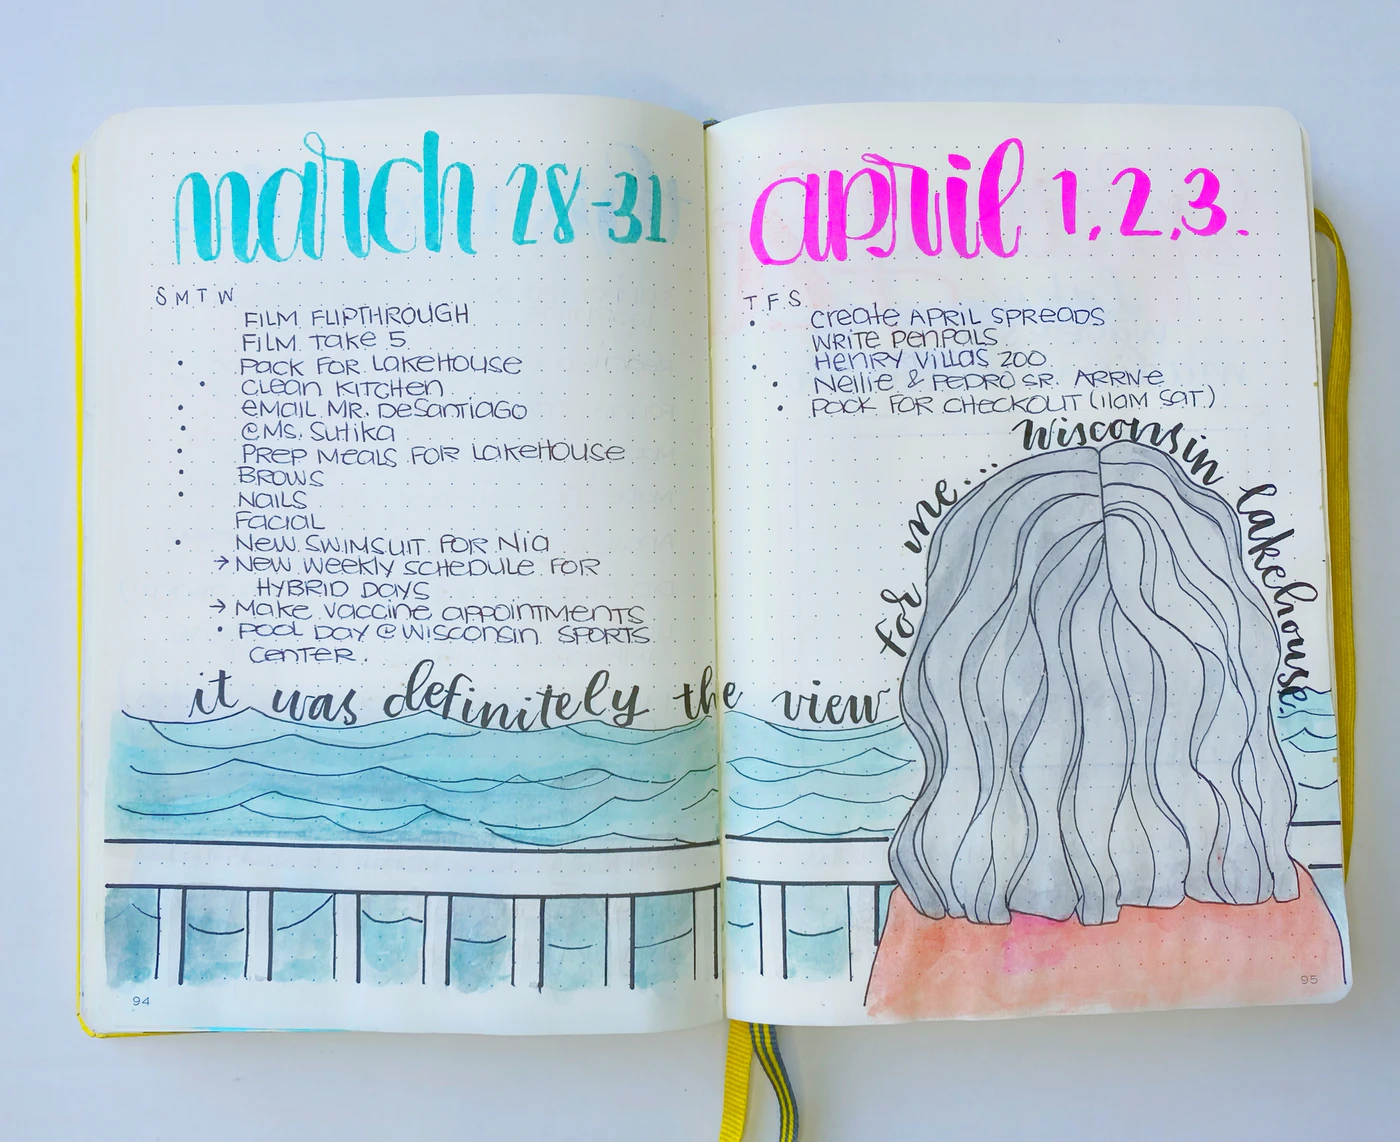 march 28-31
S M T W
FILM FLIPTHROUGH
FILM TAKE 5
• PACK FOR LAKEHOUSE
• CLEAN KITCHEN
• EMAIL MR. DESANTIAGO
• @MS. SUTIKA
• PREP MEALS FOR LAKEHOUSE
• BROWS
• NAILS
FACIAL
• NEW SWIMSUIT FOR NIA
→ NEW WEEKLY SCHEDULE FOR
HYBRID DAYS
→ MAKE VACCINE APPOINTMENTS
• POOL DAY @ WISCONSIN SPORTS
CENTER.
april 1, 2, 3.
T F S
• CREATE APRIL SPREADS
WRITE PENPALS
• HENRY VILLAS ZOO
• NELLIE & PEDRO SR. ARRIVE
• PACK FOR CHECKOUT (11AM SAT.)
it was definitely the view
for me... Wisconsin lakehouse.
94
95